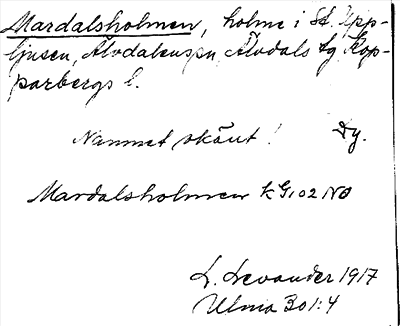 Mardalsholmen, holme i St. Upp-
ljusen, Älvdalens sn Älvdals tg Kop-
parbergs l.
Namnet okänt! Dy.
Mardalsholmen k G, 02 NO
L. Levander 1917
Ulma 301:4